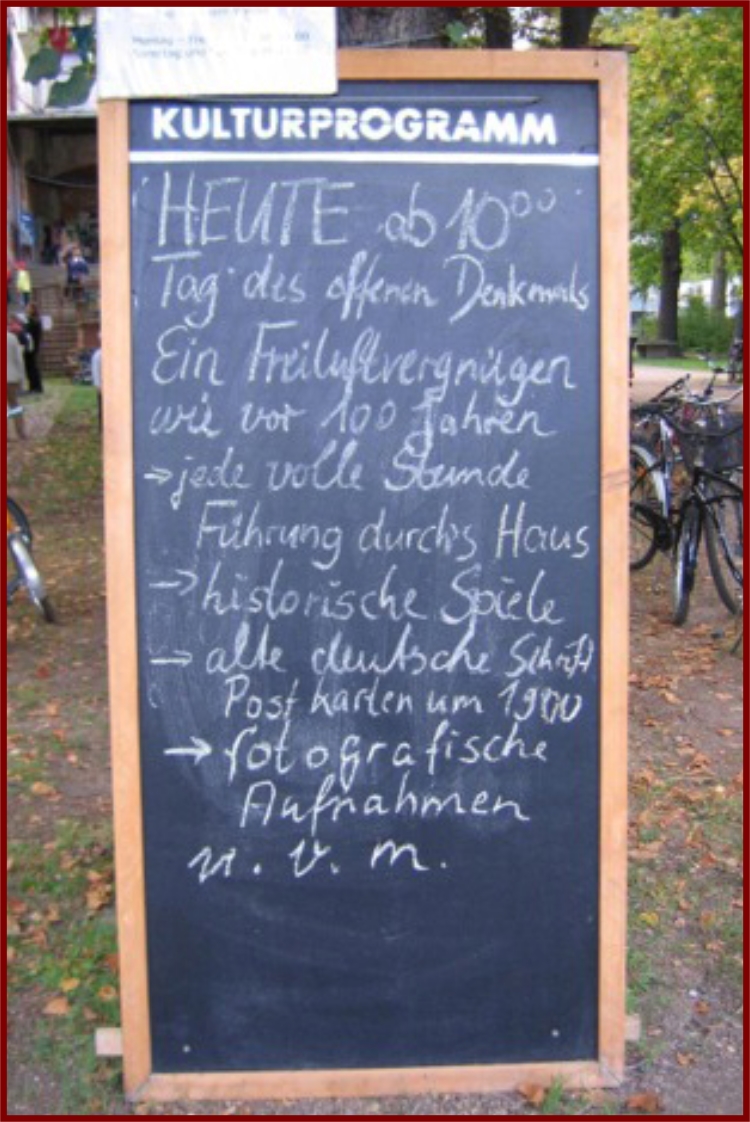 KULTURPROGRAMM
HEUTE ab 10⁰⁰
Tag des offenen Denkmals
Ein Freiluftvergnügen
wie vor 100 Jahren
→ jede volle Stunde
Führung durch's Haus
→ historische Spiele
→ alte deutsche Schrift
Postkarten um 1900
→ fotografische
Aufnahmen
u. v. m.